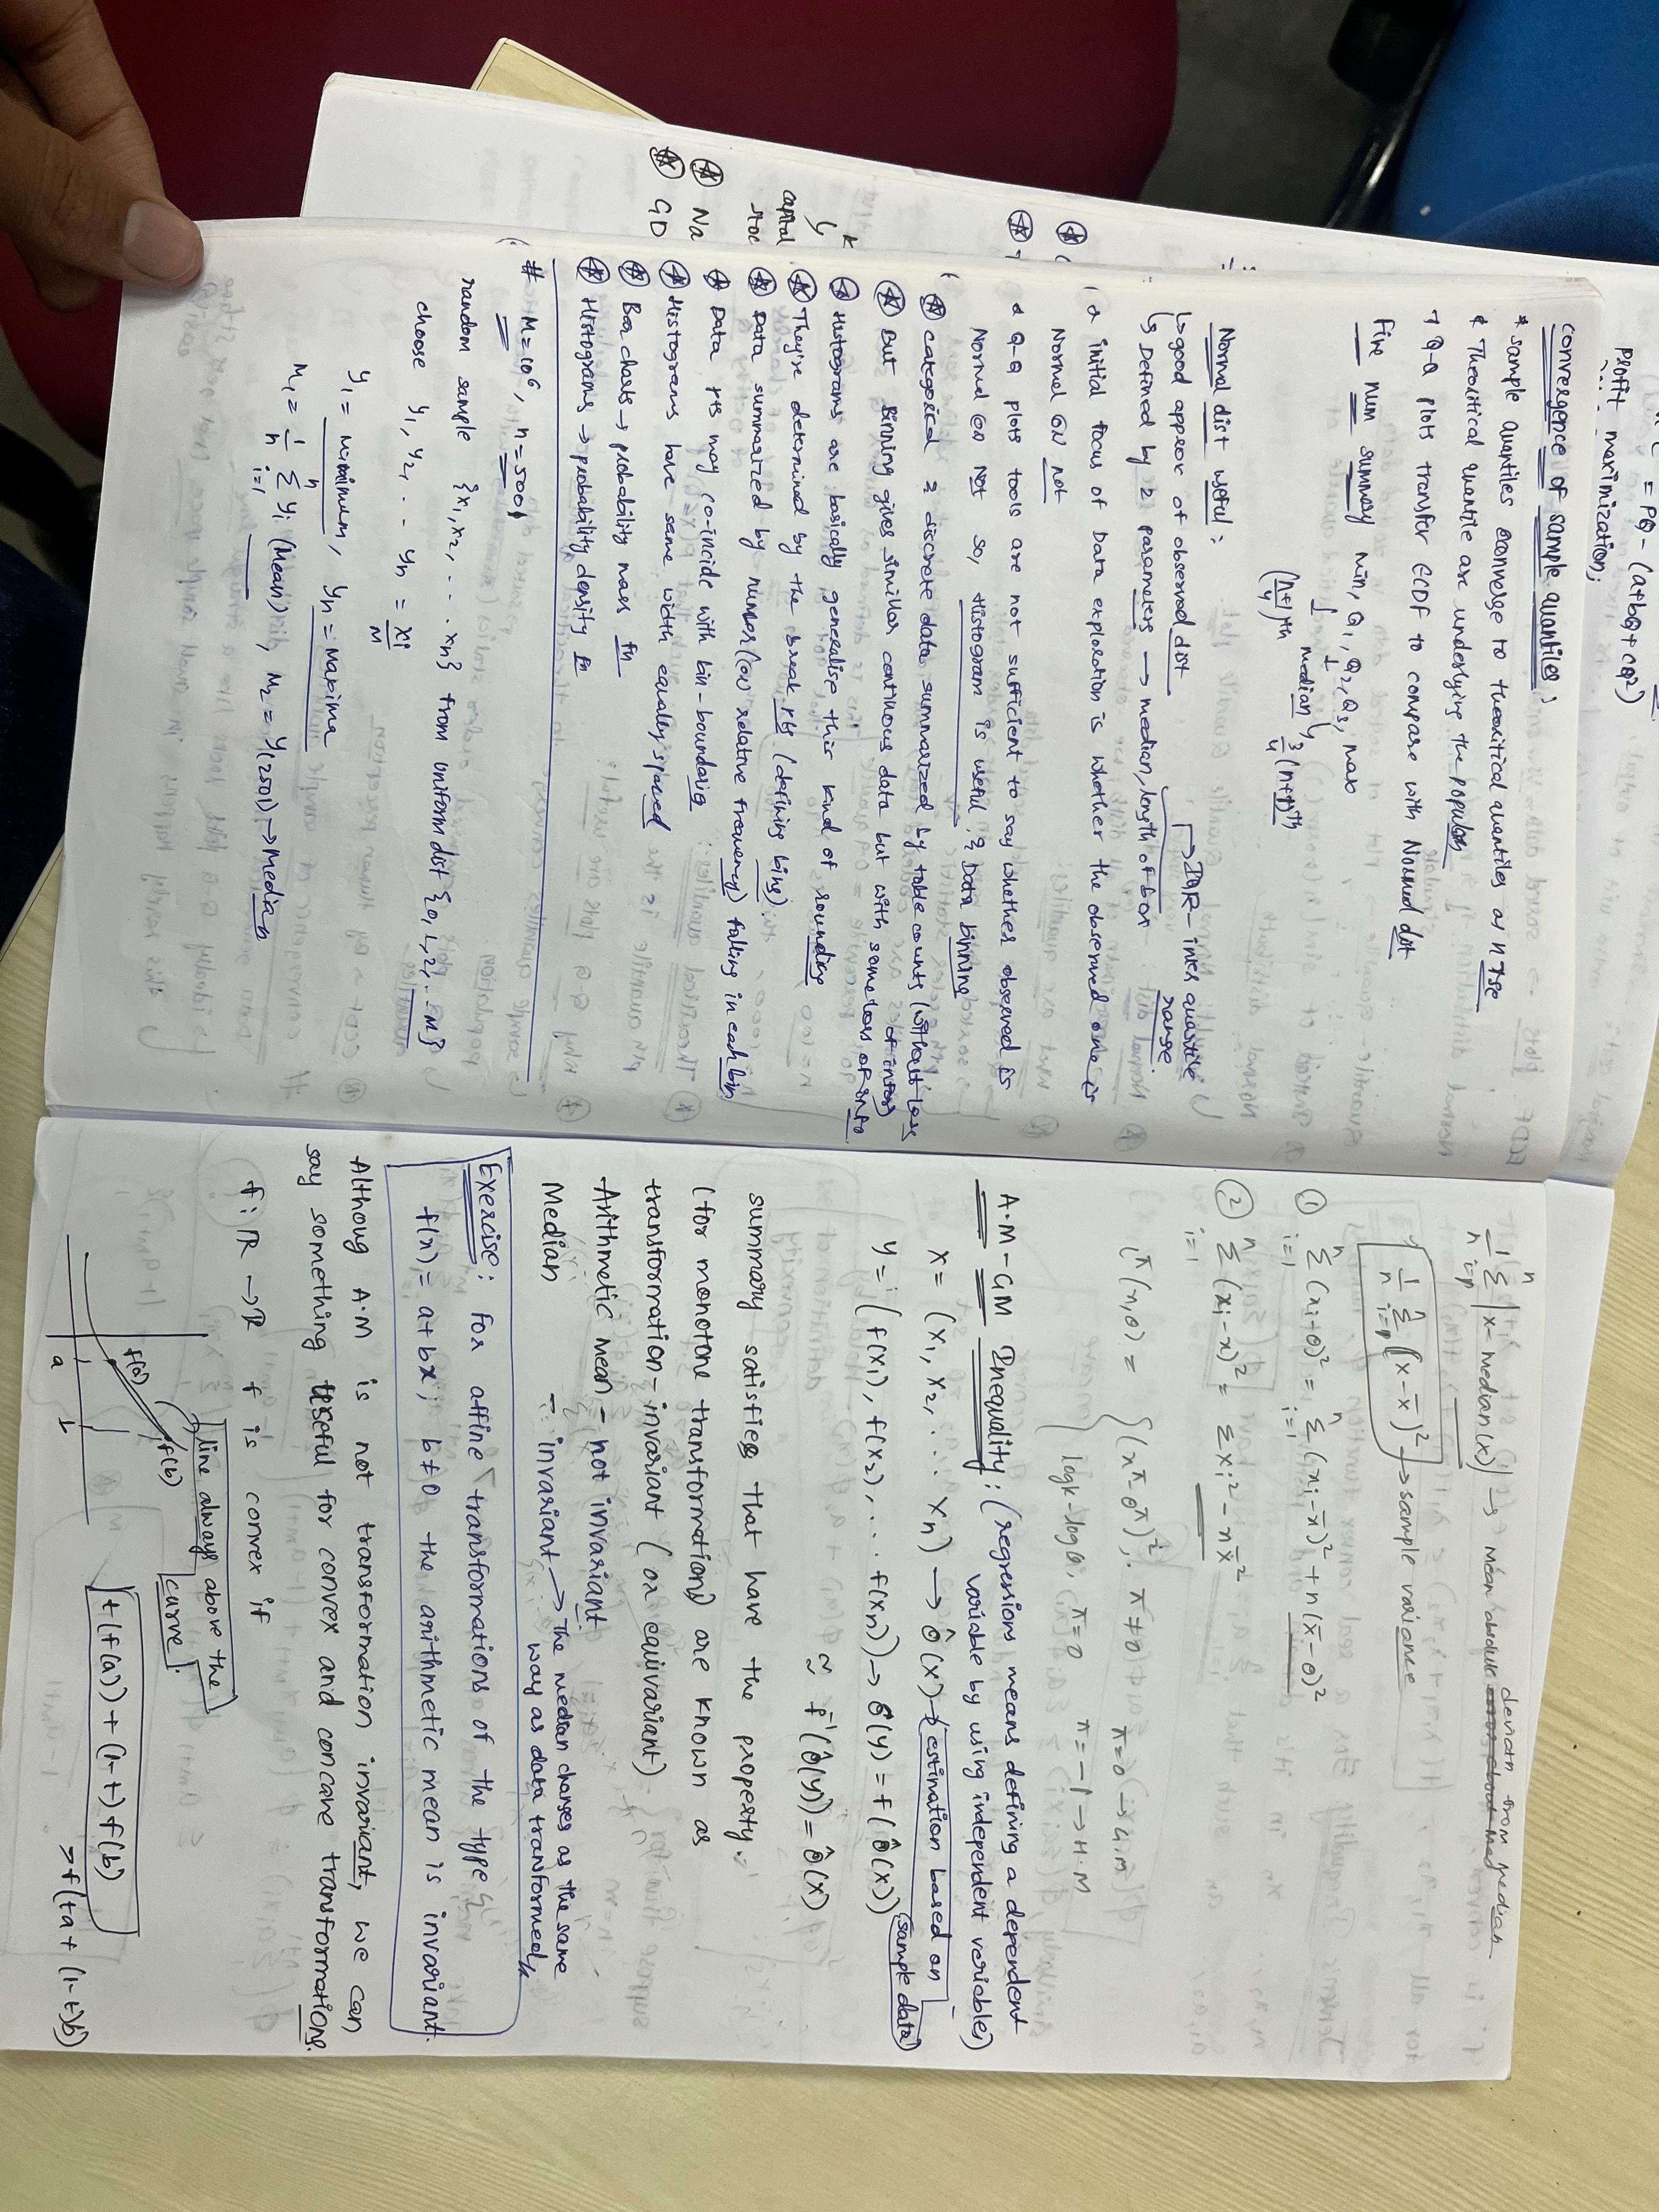 = PQ - (a+bQ+cQ²)
profit maximization;
convergence of sample quantiles;
* sample quantiles converge to theoritical quantiles as n↑se
* Theoritical quantile are underlying the populan
* Q-Q plots transfer ECDF to compare with Normal dist
Five num summary min, Q1, Q2, Q3, max
↓ ↓
median
(n+1/4)th 3/4 (n+1)th
Normal dist useful:
↳ good approx of observed dist
↳ Defined by 2 parameters → median, length of box
→ IQR - inter quantile
range
* initial focus of Data exploration is whether the observed one is
Normal or not
* Q-Q plots tools are not sufficient to say whether observed is
Normal or Not so, Histogram is useful, Data binning
* categorical & discrete data summarized by table counts (without loss
of infos)
* But Binning gives similar continous data but with some loss of info
* Histograms are basically genealise this kind of rounding
* They're determined by the break pts (defining bins)
* Data summarized by number (or relative frequency) falling in each bin
* Data pts may co-incide with bin-boundaries
* Histograms have same width equally-spaced
* Bar charts → probability mass fn
* Histograms → probability density fn
# M = 10⁶, n = 5001
random sample {x1, x2, ... xn} from uniform dist {0, 1, 2, .. M}
choose y1, y2, ... yn = xi/M
y1 = minimum, yn = maxima
M1 = 1/n Σ_{i=1}^n yi (Mean), M2 = y(2501) → Median
1/n Σ |x - median(x)| → mean absolute devian from median
1/n Σ (x - x̄)² → sample variance
① Σ_{i=1}^n (xi + θ)² = Σ_{i=1}^n (xi - x̄)² + n(x̄ - θ)²
② Σ_{i=1}^n (xi - x)² = Σxi² - nx̄²
π=0 → G.M
(x^π - θ^π)², π ≠ 0
π = -1 → H.M
π = 0
A.M - GM Inequality: (regressions means defining a dependent
variable by using independent variable)
x = (x1, x2, ... xn) → θ̂(x) → estimation based on
sample data
y = (f(x1), f(x2), ... f(xn)) → θ̂(y) = f(θ̂(x))
≈ f⁻¹(θ̂(y)) = θ̂(x)
summary satisfies that have the property
(for monotone transformation) are known as
transformation-invariant (or equivariant)
Arithmetic mean - not invariant
Median - invariant → The median changes as the same
way as data transformed
Exercise: For affine transformations of the type
f(x) = a + bx, b≠0 the arithmetic mean is invariant.
Although A.M is not transformation invariant, we can
say something useful for convex and concave transformations.
f: ℝ → ℝ f is convex if
line always above the
curve.
f(a) f(b)
a b
t(f(a)) + (1-t) f(b)
≥ f(ta + (1-t)b)
* Na
* GD
capital